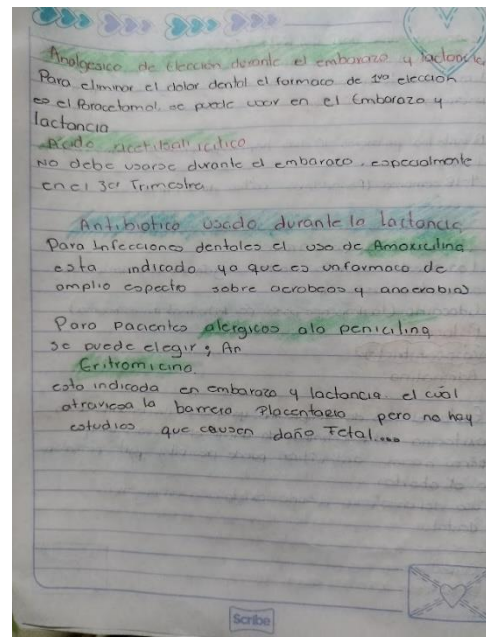 Analgesico de Elección durante el embarazo y lactancia
Para eliminar el dolor dental el farmaco de 1ra elección
es el Paracetamol, se puede usar en el Embarazo y
lactancia
Acido acetilsalicilico
NO debe usarse durante el embarazo, especialmente
en el 3er Trimestre
Antibiotico usado durante la lactancia
Para Infecciones dentales el uso de Amoxicilina
esta indicado ya que es un farmaco de
amplio espectro sobre aerobeos y anaerobias
Para pacientes alergicos a la penicilina
se puede elegir; An
Eritromicina
esta indicada en embarazo y lactancia el cuál
atraviesa la barrera Placentaria pero no hay
estudios que causen daño Fetal...
Scribe